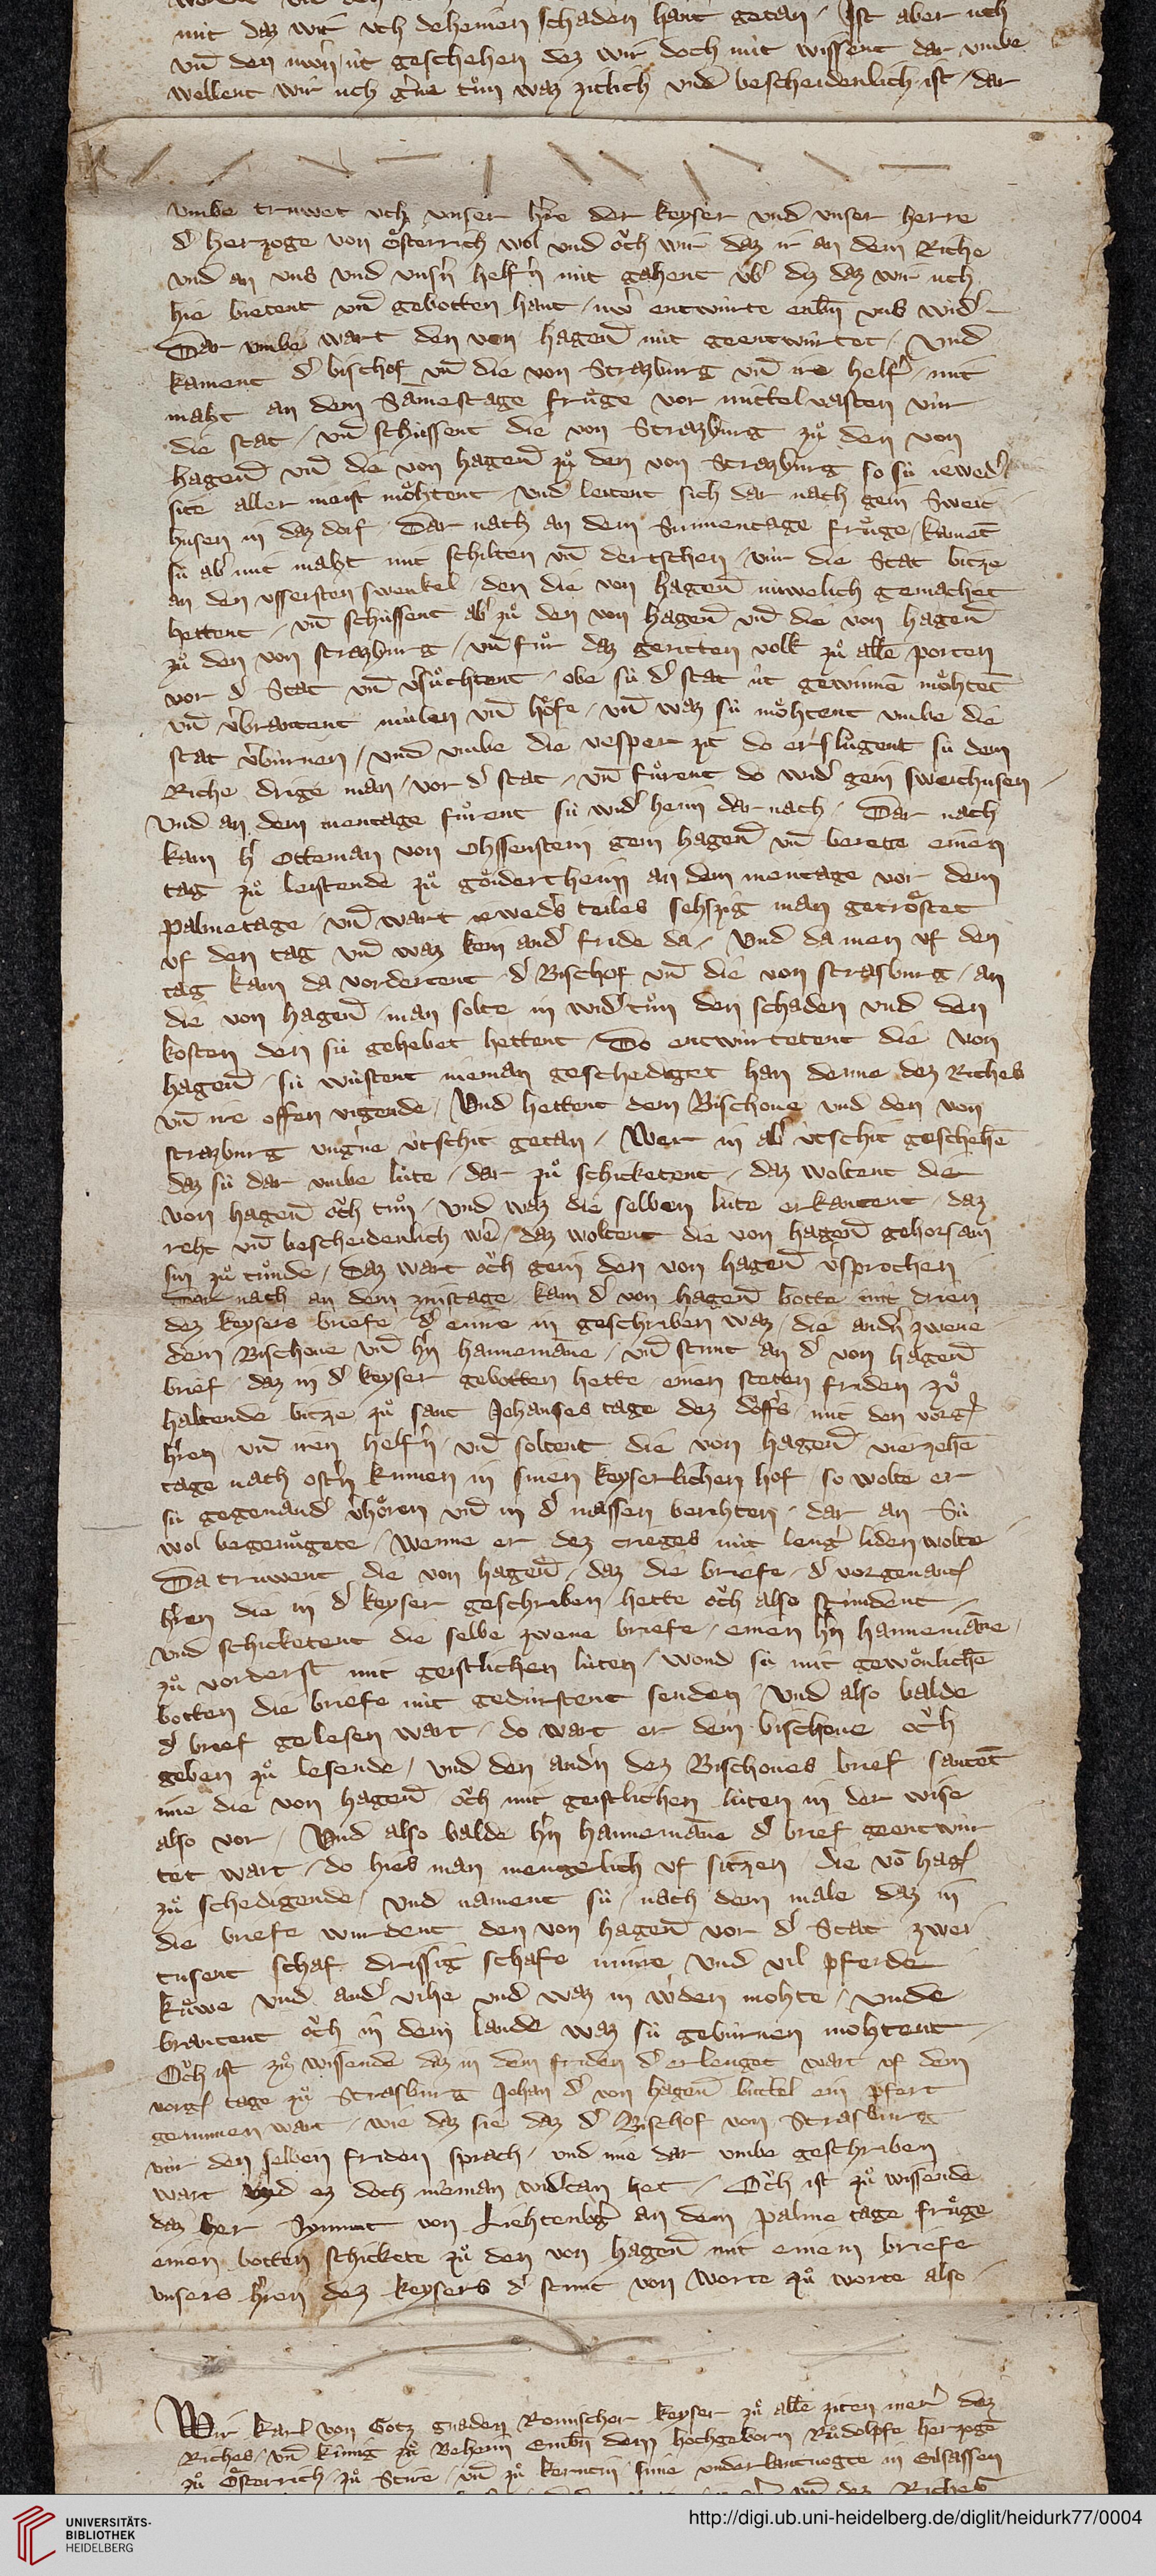 mit daz wir uch deheinen schaden hant getan / Ist aber uch
vn̄ den uwn̄ út geschehen dez wir doch nút wissent dar vmbe
wellent wir uch g'ne tůn waz zitlich vnd bescheidenlich ist / dar
vmbe truwet uch vnser h're der keyser vnd vnser herre
d' herzoge von Ősterrich wol vnd ŏch wir daz ir an dem Riche
vnd an vns vnd vnsn̄ helfn̄ nút gahent úb' dz daz wir uch
hie bietent vn̄ gebotten hant / uw' entwúrte enbn̄ vns wid'
Dar vmbe wart den von hagen̄ nút geentwúrtet / Vnd
kament d' bischof vn̄ die von Strazburg vn̄ ire helf' mit
maht an dem Samestage frůge vor mittelvasten vúr
die stat / vn̄ schússent die von Strazburg zů den von
hagen̄ vn̄ die von hagen̄ zů den von Strazburg so sú iewed'
site aller meist mŏhtent / vnd leitent sich dar nach gein Sweic
husen in daz dorf / Dar nach an dem Sunnentage frůge / kamēt
sú ab' mit maht mit schilten vn̄ dertschen / vúr die Stat bitze
an den vssersten swenkel / den die von hagen̄ nuwelich gemachet
hettent / vn̄ schússent ab' zů den von hagen̄ vn̄ die von hagen̄
zů den von strazburg / vn̄ fůr daz geritten volk zů allē porten
vor d' Stat vn̄ v'sůchtent / obe sú d' stat út gewinnē mŏhtēt
vn̄ v'brantent múlen vn̄ hŏfe / vn̄ waz sú mŏhtent vmbe die
stat v'búrnen / vnd vmbe die vesper zit do erslůgent sú dem
Riche drige man / vor d' stat / vn̄ fůrent do wid' gein sweichusen /
Vnd an dem mentage fůrent sú wid' heim dar nach / Dar nach
kam h' Otteman von Ohssenstein gein hagen̄ vn̄ berette einen
tag zů leistende zů gŏidertheim an dem mentage vor dem
palmetage / vn̄ wart ieweders teiles sehszig man getrŏstet
vf den tag vn̄ waz kein and' fride da / Vnd da men vf den
tag kam da vordertent d' Bischof vn̄ die von strasburg / an
die von hagen̄ / man solte in wid'tůn den schaden vnd den
kosten den sú gehebet hettent / Do entwúrtetent die von
hagen̄ / sú wústent nieman geschediget han denne dez Riches
vn̄ ire offen vigende / Vnd hettent dem Bischoue vnd den von
strazburg vng'ne útschit getan / Wer in ab' útschit geschehē
daz sú dar vmbe lúte / dar zů schicketent / daz woltent die
von hagen̄ ŏch tůn / vnd waz die selben lúte erkantent / daz
reht vn̄ bescheidenlich we' / daz woltent die von hagen̄ gehorsam
sin zů tůnde / Daz wart ŏch gein den von hagen̄ v'sprochen
Dar nach an dem zinstage kam d' von hagen̄ botte mit drien
dez keysers briefe / d' eine in geschriben waz / die andn̄ zwene
dem Bischoue vn̄ h'n hannemane / vn̄ stunt an d' von hagen̄
brief / daz in d' keyser gebotten hette / einen steten friden zů
haltende bitze zů sant Johanses tage dez dŏffs / mit den vorg'
h'ren vn̄ iren helfn̄ / vn̄ soltent die von hagen̄ vierzehē
tage nach ostn̄ kumen in sinen keyserlichen hof / so wolte er
sú gegenand' v'hŏren vn̄ in d' massen berihten / dar an Sú
wol begenůgete / Wenne er dez crieges nút leng' liden wolte
Da truwent die von hagen̄ / daz die briefe / d' vorgenant'
h'ren die in d' keyser geschriben hette ŏch also stúndent /
vnd schicketent die selbe zwene briefe / einen h'n hannemane /
zů vorderst mit geistlichen lúten / wond sú mit gewŏnlichē
botten die briefe nút gedurstent senden / Vnd also balde
d' brief gelesen wart / do wart er dem bischoue ŏch
geben zů lesende / vnd den andn̄ dez Bischoues brief santēt
ime die von hagen̄ ŏch mit geistlichen lúten in der wise
also vor / Vnd also balde h'n hannemane d' brief geentwúr
tet wart / do hies man mengelich vf sitzen / die vō hag'
zů schedigende / vnd nament sú / nach dem male daz in
die briefe wurdent den von hagen̄ vor d' Stat zwei
tusent schaf drissig schafe minre vnd vil pferde
kůwe vnd and' vihe vnd waz in w'den mohte / vnde
brantent ŏch in dem lande waz sú gebúrnen mohtent /
Ŏch ist zů wissende daz in dem friden d' erlenget wart vf dem
vorg' tage zů Strasburg Johan d' von hagen̄ búttel ein pfert
genummen wart / wie daz sie daz d' Bischof von Strasburg
vúr den selben friden sprach / vnd ime dar vmbe geschriben
wart vnd ez doch nieman wid'tan het / Ŏch ist zů wissende
daz her Symunt von Liehtenb'g an dem palme tage frůge
einen botten schickete zů den von hagen̄ mit einem briefe
vnsers h'ren dez keysers d' stunt von worte zů worte also
Wir Karl von Gotz gnaden Romischer keyser zů allē ziten mer' dez
Riches / vn̄ kúnig zů Behem Enbn̄ dem hochgeborn Růdolpfe herzogē
zů Ősterrich / zů Stire / vn̄ zů kernten sime vnderlantuogte in Eilsassen
UNIVERSITÄTS-
BIBLIOTHEK
HEIDELBERG
http://digi.ub.uni-heidelberg.de/diglit/heidurk77/0004